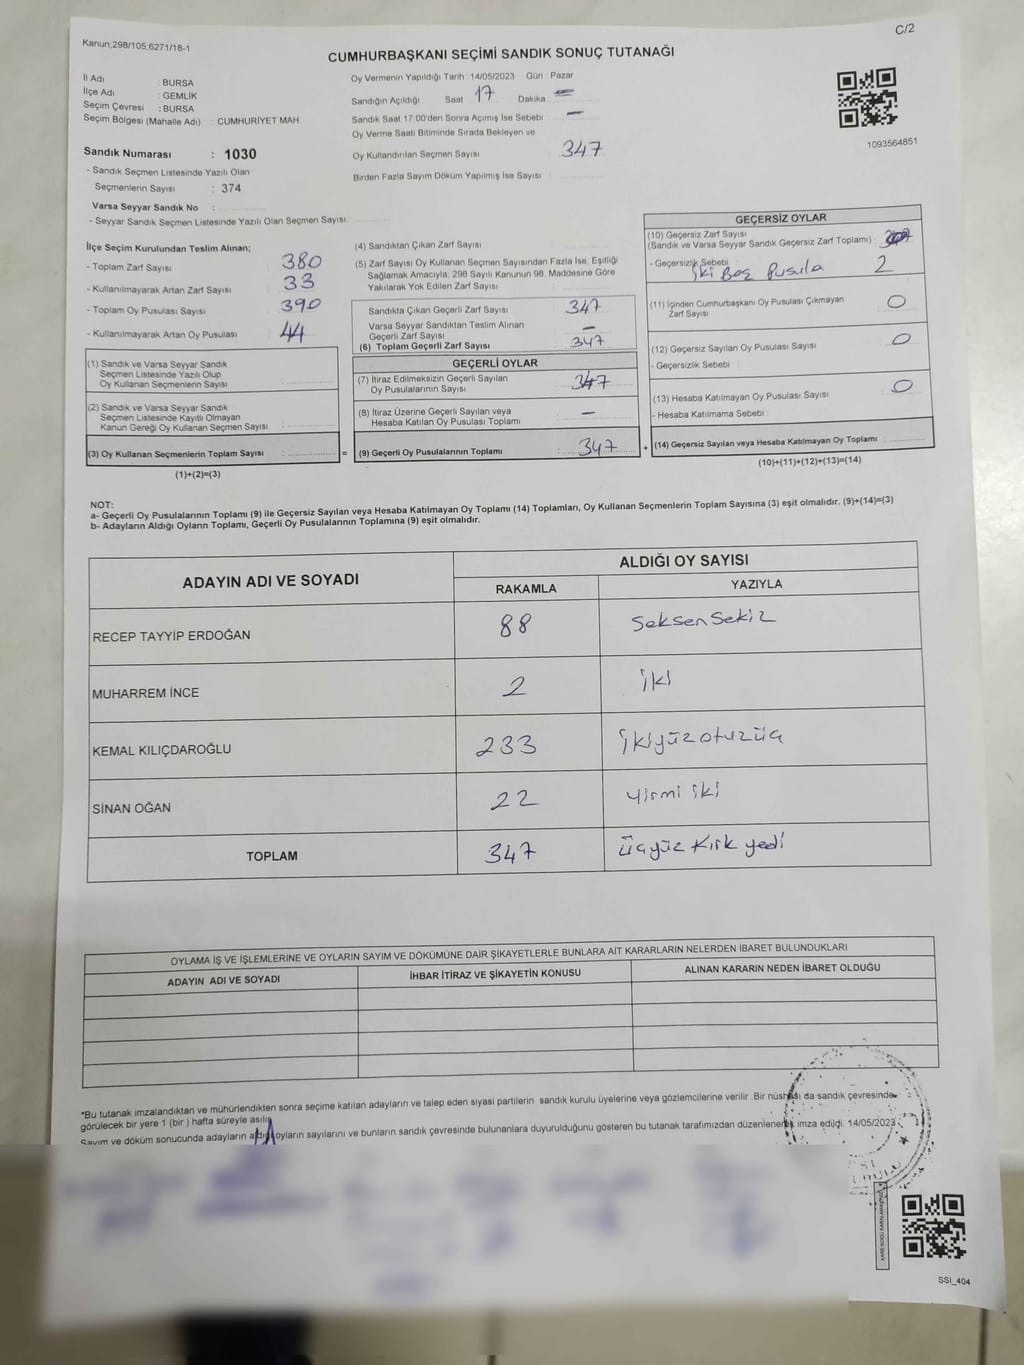 Kanun;298/105;6271/18-1
C/2
CUMHURBAŞKANI SEÇİMİ SANDIK SONUÇ TUTANAĞI
İl Adı : BURSA
İlçe Adı : GEMLİK
Seçim Çevresi : BURSA
Seçim Bölgesi (Mahalle Adı) : CUMHURİYET MAH.
Sandık Numarası : 1030
- Sandık Seçmen Listesinde Yazılı Olan
Seçmenlerin Sayısı : 374
Varsa Seyyar Sandık No :
- Seyyar Sandık Seçmen Listesinde Yazılı Olan Seçmen Sayısı:
Oy Vermenin Yapıldığı Tarih : 14/05/2023 Gün : Pazar
Sandığın Açıldığı Saat 17 Dakika : —
Sandık Saat 17:00'den Sonra Açımış İse Sebebi : —
Oy Verme Saati Bitiminde Sırada Bekleyen ve
Oy Kullandırılan Seçmen Sayısı : 347
Birden Fazla Sayım Döküm Yapılmış İse Sayısı :
1093564851
İlçe Seçim Kurulundan Teslim Alınan;
- Toplam Zarf Sayısı : 380
- Kullanılmayarak Artan Zarf Sayısı : 33
- Toplam Oy Pusulası Sayısı : 390
- Kullanılmayarak Artan Oy Pusulası : 44
(1) Sandık ve Varsa Seyyar Sandık
Seçmen Listesinde Yazılı Olup
Oy Kullanan Seçmenlerin Sayısı :
(2) Sandık ve Varsa Seyyar Sandık
Seçmen Listesinde Kayıtlı Olmayan
Kanun Gereği Oy Kullanan Seçmen Sayısı :
(3) Oy Kullanan Seçmenlerin Toplam Sayısı : =
(1)+(2)=(3)
(4) Sandıktan Çıkan Zarf Sayısı :
(5) Zarf Sayısı Oy Kullanan Seçmen Sayısından Fazla İse, Eşitliği
Sağlamak Amacıyla; 298 Sayılı Kanunun 98. Maddesine Göre
Yakılarak Yok Edilen Zarf Sayısı :
Sandıkta Çıkan Geçerli Zarf Sayısı : 347
Varsa Seyyar Sandıktan Teslim Alınan
Geçerli Zarf Sayısı : —
(6) Toplam Geçerli Zarf Sayısı : 347
GEÇERLİ OYLAR
(7) İtiraz Edilmeksizin Geçerli Sayılan
Oy Pusulalarının Sayısı : 347
(8) İtiraz Üzerine Geçerli Sayılan veya
Hesaba Katılan Oy Pusulası Toplamı : —
(9) Geçerli Oy Pusulalarının Toplamı : 347 +
GEÇERSİZ OYLAR
(10) Geçersiz Zarf Sayısı
(Sandık ve Varsa Seyyar Sandık Geçersiz Zarf Toplamı) :
- Geçersizlik Sebebi :
İki Boş Pusula 2
(11) İçinden Cumhurbaşkanı Oy Pusulası Çıkmayan
Zarf Sayısı : 0
(12) Geçersiz Sayılan Oy Pusulası Sayısı : 0
- Geçersizlik Sebebi :
(13) Hesaba Katılmayan Oy Pusulası Sayısı : 0
- Hesaba Katılmama Sebebi :
(14) Geçersiz Sayılan veya Hesaba Katılmayan Oy Toplamı :
(10)+(11)+(12)+(13)=(14)
NOT:
a- Geçerli Oy Pusulalarının Toplamı (9) ile Geçersiz Sayılan veya Hesaba Katılmayan Oy Toplamı (14) Toplamları, Oy Kullanan Seçmenlerin Toplam Sayısına (3) eşit olmalıdır. (9)+(14)=(3)
b- Adayların Aldığı Oyların Toplamı, Geçerli Oy Pusulalarının Toplamına (9) eşit olmalıdır.
ADAYIN ADI VE SOYADI
ALDIĞI OY SAYISI
RAKAMLA YAZIYLA
RECEP TAYYİP ERDOĞAN 88 Seksen Sekiz
MUHARREM İNCE 2 İki
KEMAL KILIÇDAROĞLU 233 İkiyüzotuzüç
SİNAN OĞAN 22 Yirmi iki
TOPLAM 347 Üçyüz Kırk yedi
OYLAMA İŞ VE İŞLEMLERİNE VE OYLARIN SAYIM VE DÖKÜMÜNE DAİR ŞİKAYETLERLE BUNLARA AİT KARARLARIN NELERDEN İBARET BULUNDUKLARI
ADAYIN ADI VE SOYADI İHBAR İTİRAZ VE ŞİKAYETİN KONUSU ALINAN KARARIN NEDEN İBARET OLDUĞU
*Bu tutanak imzalandıktan ve mühürlendikten sonra seçime katılan adayların ve talep eden siyasi partilerin sandık kurulu üyelerine veya gözlemcilerine verilir. Bir nüshası da sandık çevresinde
görülecek bir yere 1 (bir ) hafta süreyle asılır.
Sayım ve döküm sonucunda adayların aldığı oyların sayılarını ve bunların sandık çevresinde bulunanlara duyurulduğunu gösteren bu tutanak tarafımızdan düzenlenerek imza edildi. 14/05/2023
SSI_404